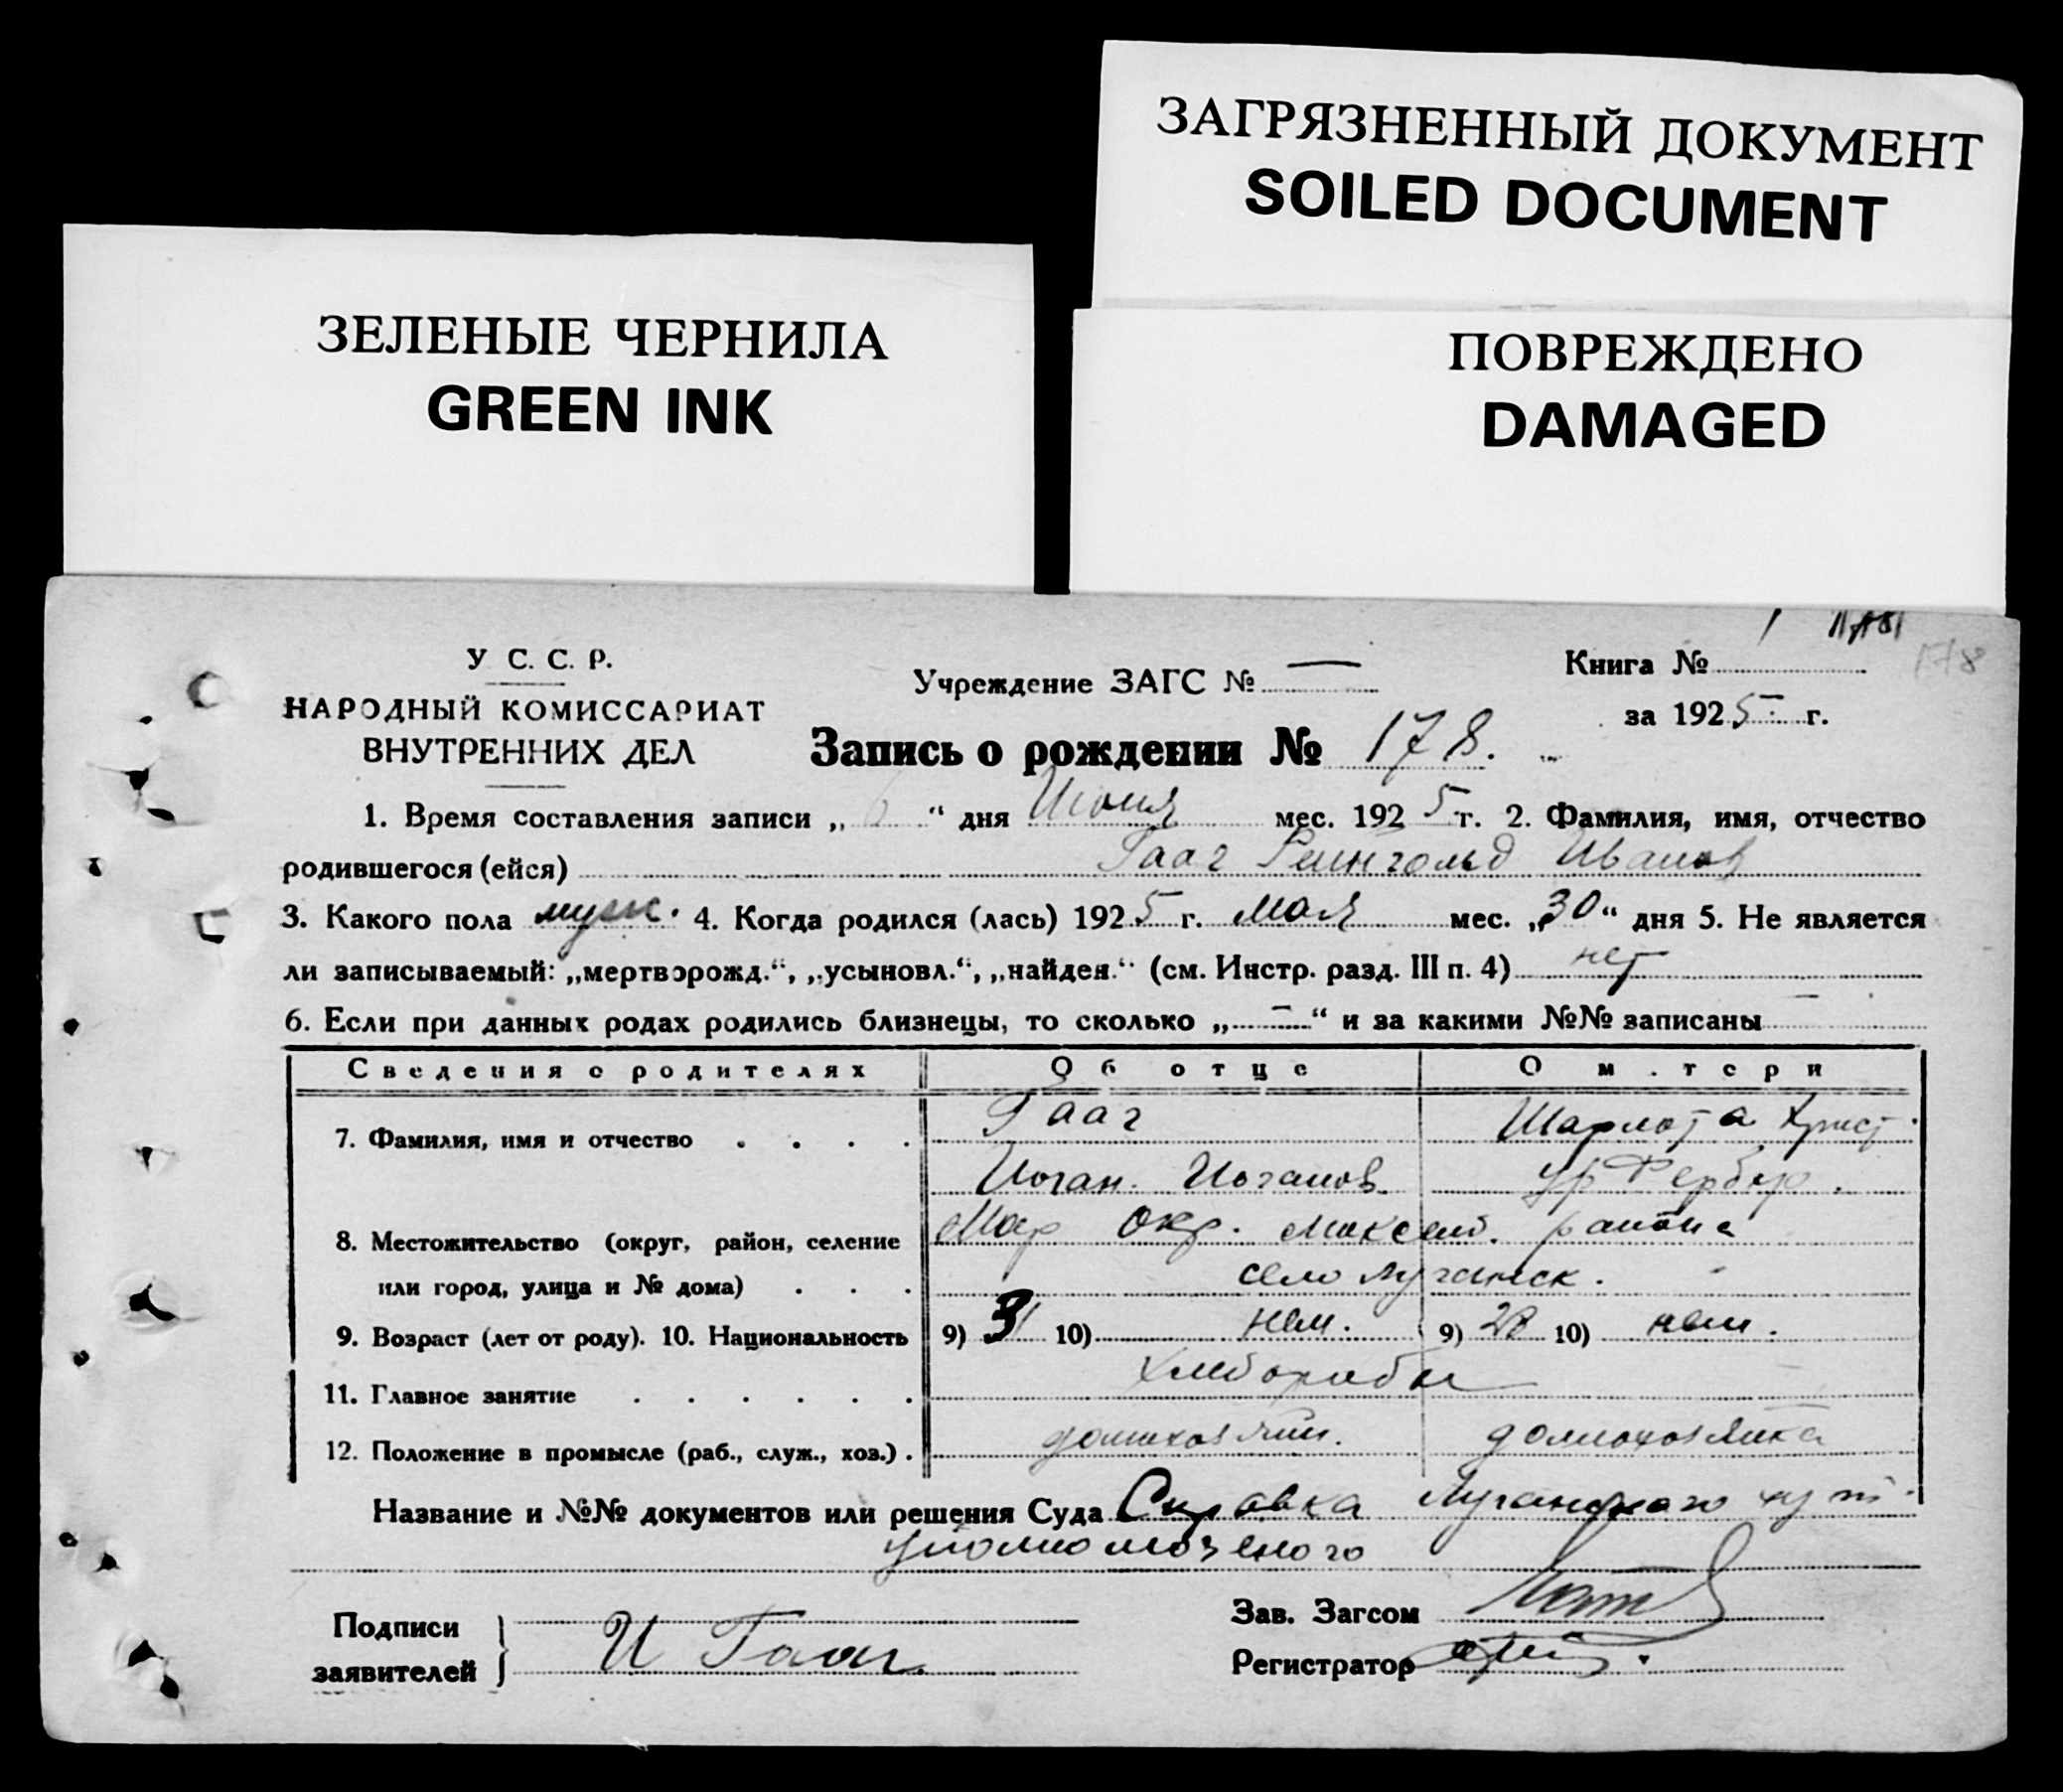 ЗАГРЯЗНЕННЫЙ ДОКУМЕНТ
SOILED DOCUMENT
ЗЕЛЕНЫЕ ЧЕРНИЛА
GREEN INK
ПОВРЕЖДЕНО
DAMAGED
У С. С. Р.
НАРОДНЫЙ КОМИССАРИАТ
ВНУТРЕННИХ ДЕЛ
Учреждение ЗАГС № —
Книга № 1
178
за 1925 г.
Запись о рождении № 178.
1. Время составления записи „6“ дня Июня мес. 1925 г. 2. Фамилия, имя, отчество
родившегося (ейся) Гааг Рейнгольд Иванов
3. Какого пола муж. 4. Когда родился (лась) 1925 г. Мая мес. „30“ дня 5. Не является
ли записываемый: „мертворожд.“, „усыновл.“, „найден.“ (см. Инстр. разд. III п. 4) нет
6. Если при данных родах родились близнецы, то сколько „—“ и за какими №№ записаны —
Сведения о родителях Об отце О м.тери
7. Фамилия, имя и отчество . . . . Гааг Шарлота Христ.
Иоган. Иоганов. ур Фербер.
8. Местожительство (округ, район, селение Мар окр. Максим. района
или город, улица и № дома) . . . село Луганск.
9. Возраст (лет от роду). 10. Национальность 9) 31 10) нем. 9) 28 10) нем.
11. Главное занятие . . . . . . хлеборобы
12. Положение в промысле (раб., служ., хоз.) . домохозяин. домохозяйка
Название и №№ документов или решения Суда Справка Луганского хут.
уполномоченого
Подписи
заявителей
И Гааг.
Зав. Загсом
Регистратор